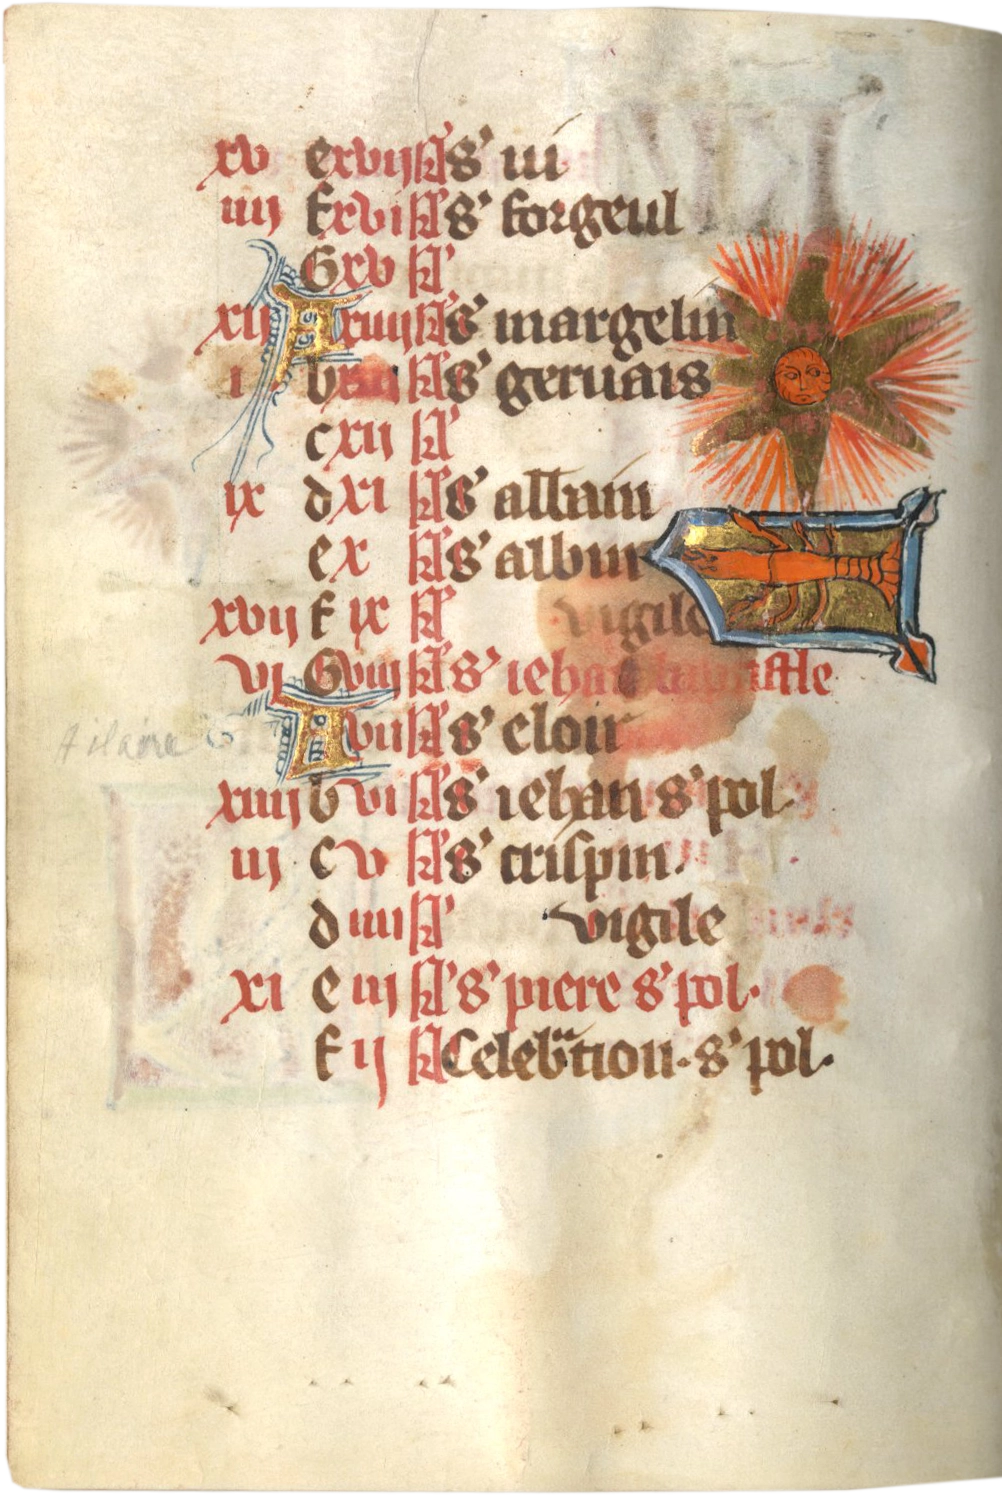 xv e xvij kl' s' iii
iiij f xvi kl' s' forgeul
G xv kl'
xij A xiiij kl' s' margelin
i b xiij kl' s' geruais
c xij kl'
ix d xi kl' s' alban
e x kl' s' albin
xvij f ix kl' vigile
vj G viij kl' s' iehan baptistle
A vij kl' s' eloir
xiiij b vi kl' s' iehan s' pol
iij c v kl' s' crispin.
d iiij kl' vigile
xi e iij kl' s' piere s' pol.
f ij kl' Celebration. s' pol.